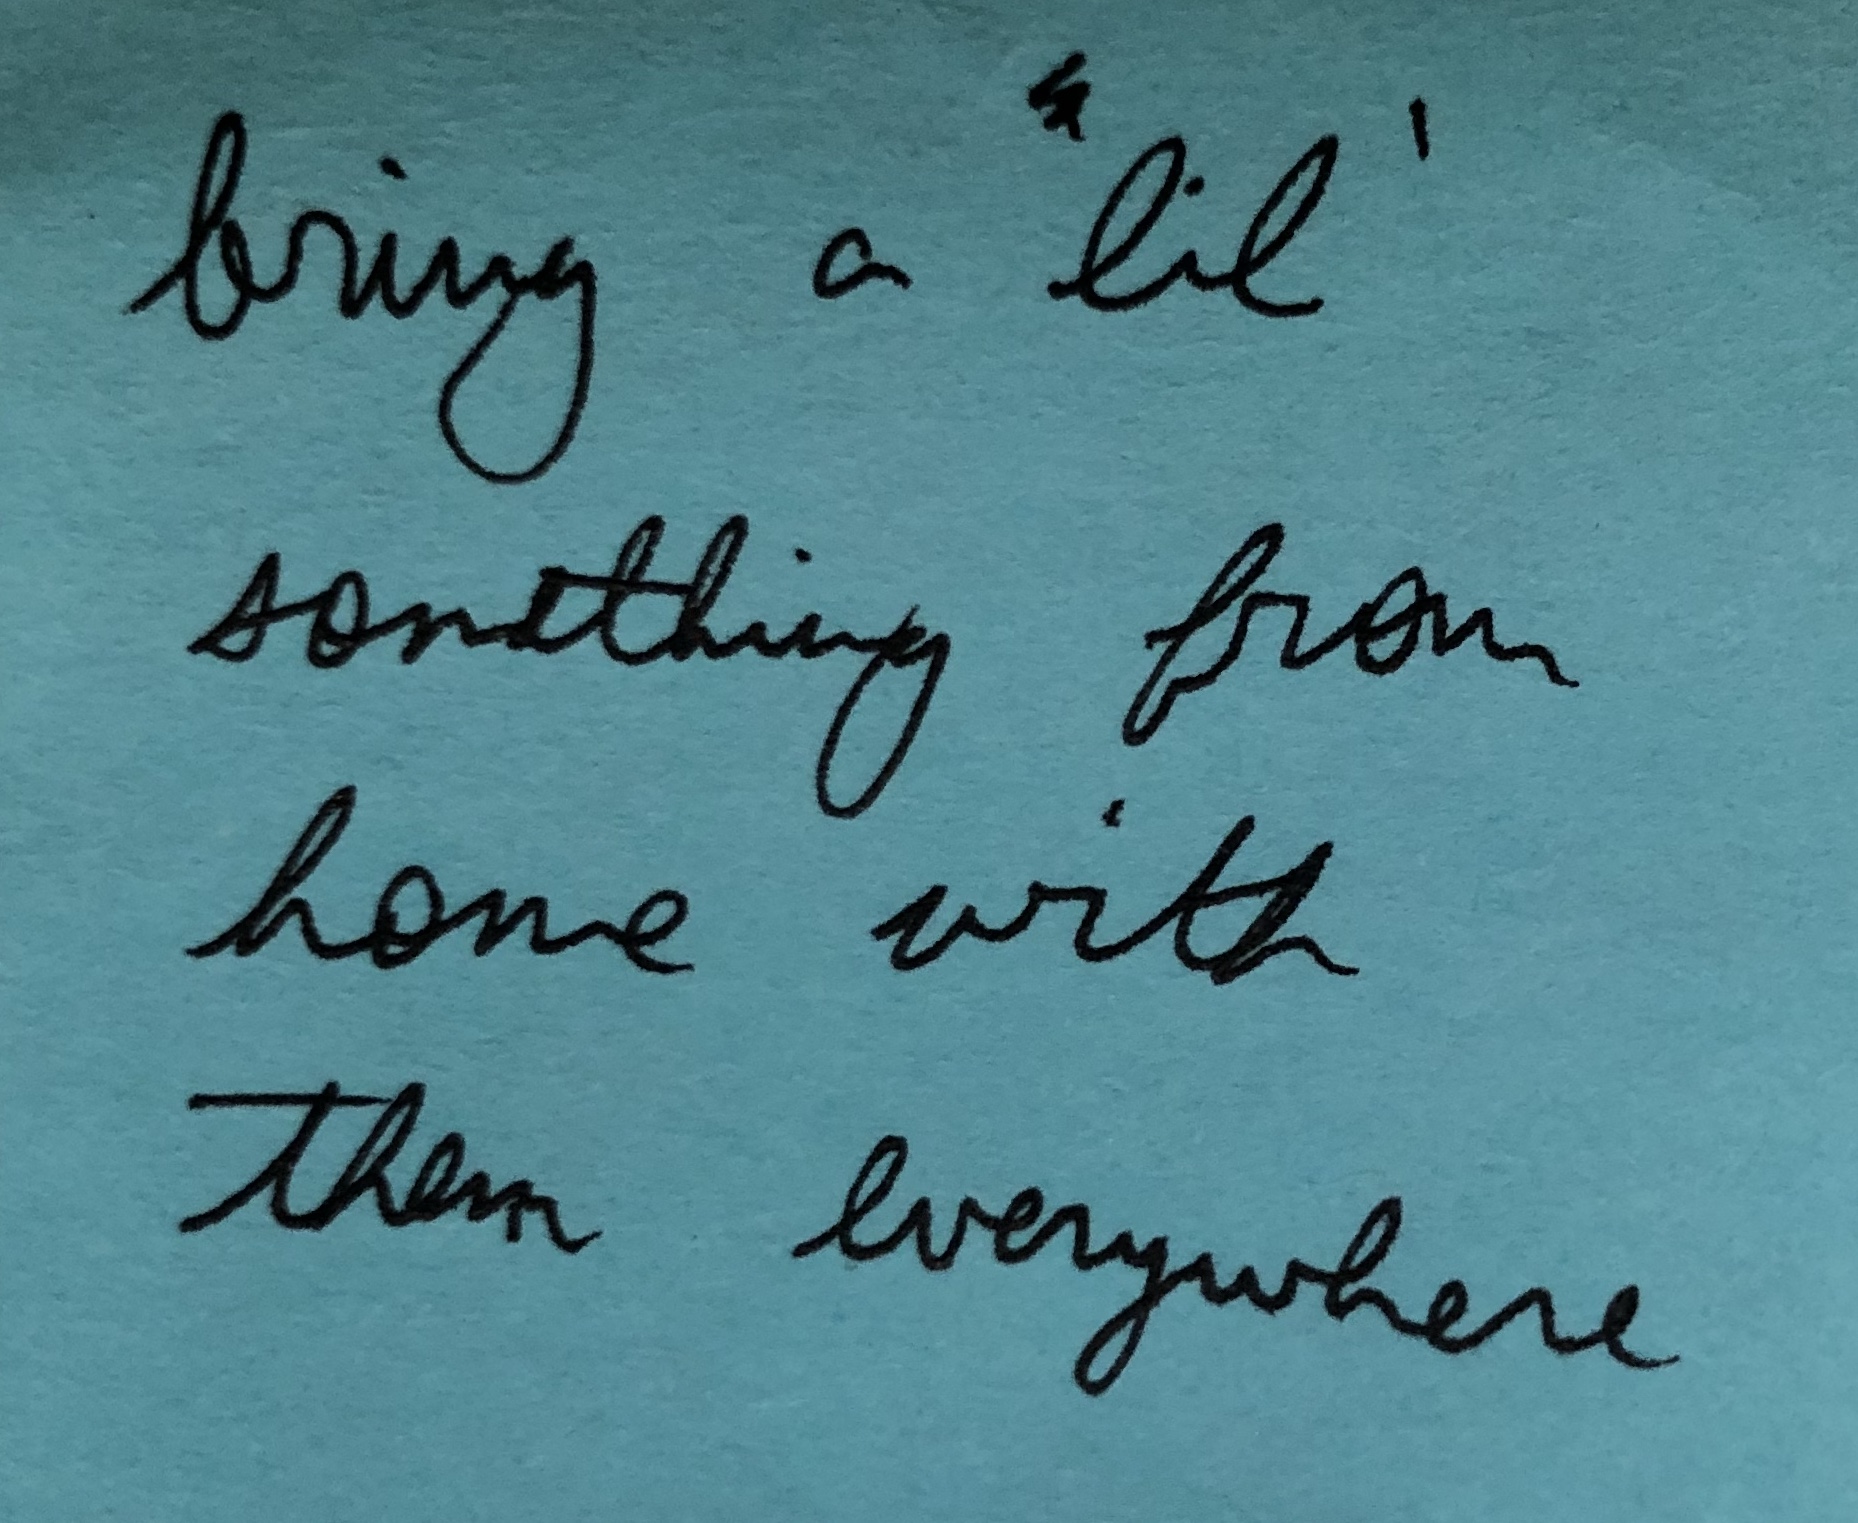 bring a "lil'
something from
home with
them everywhere